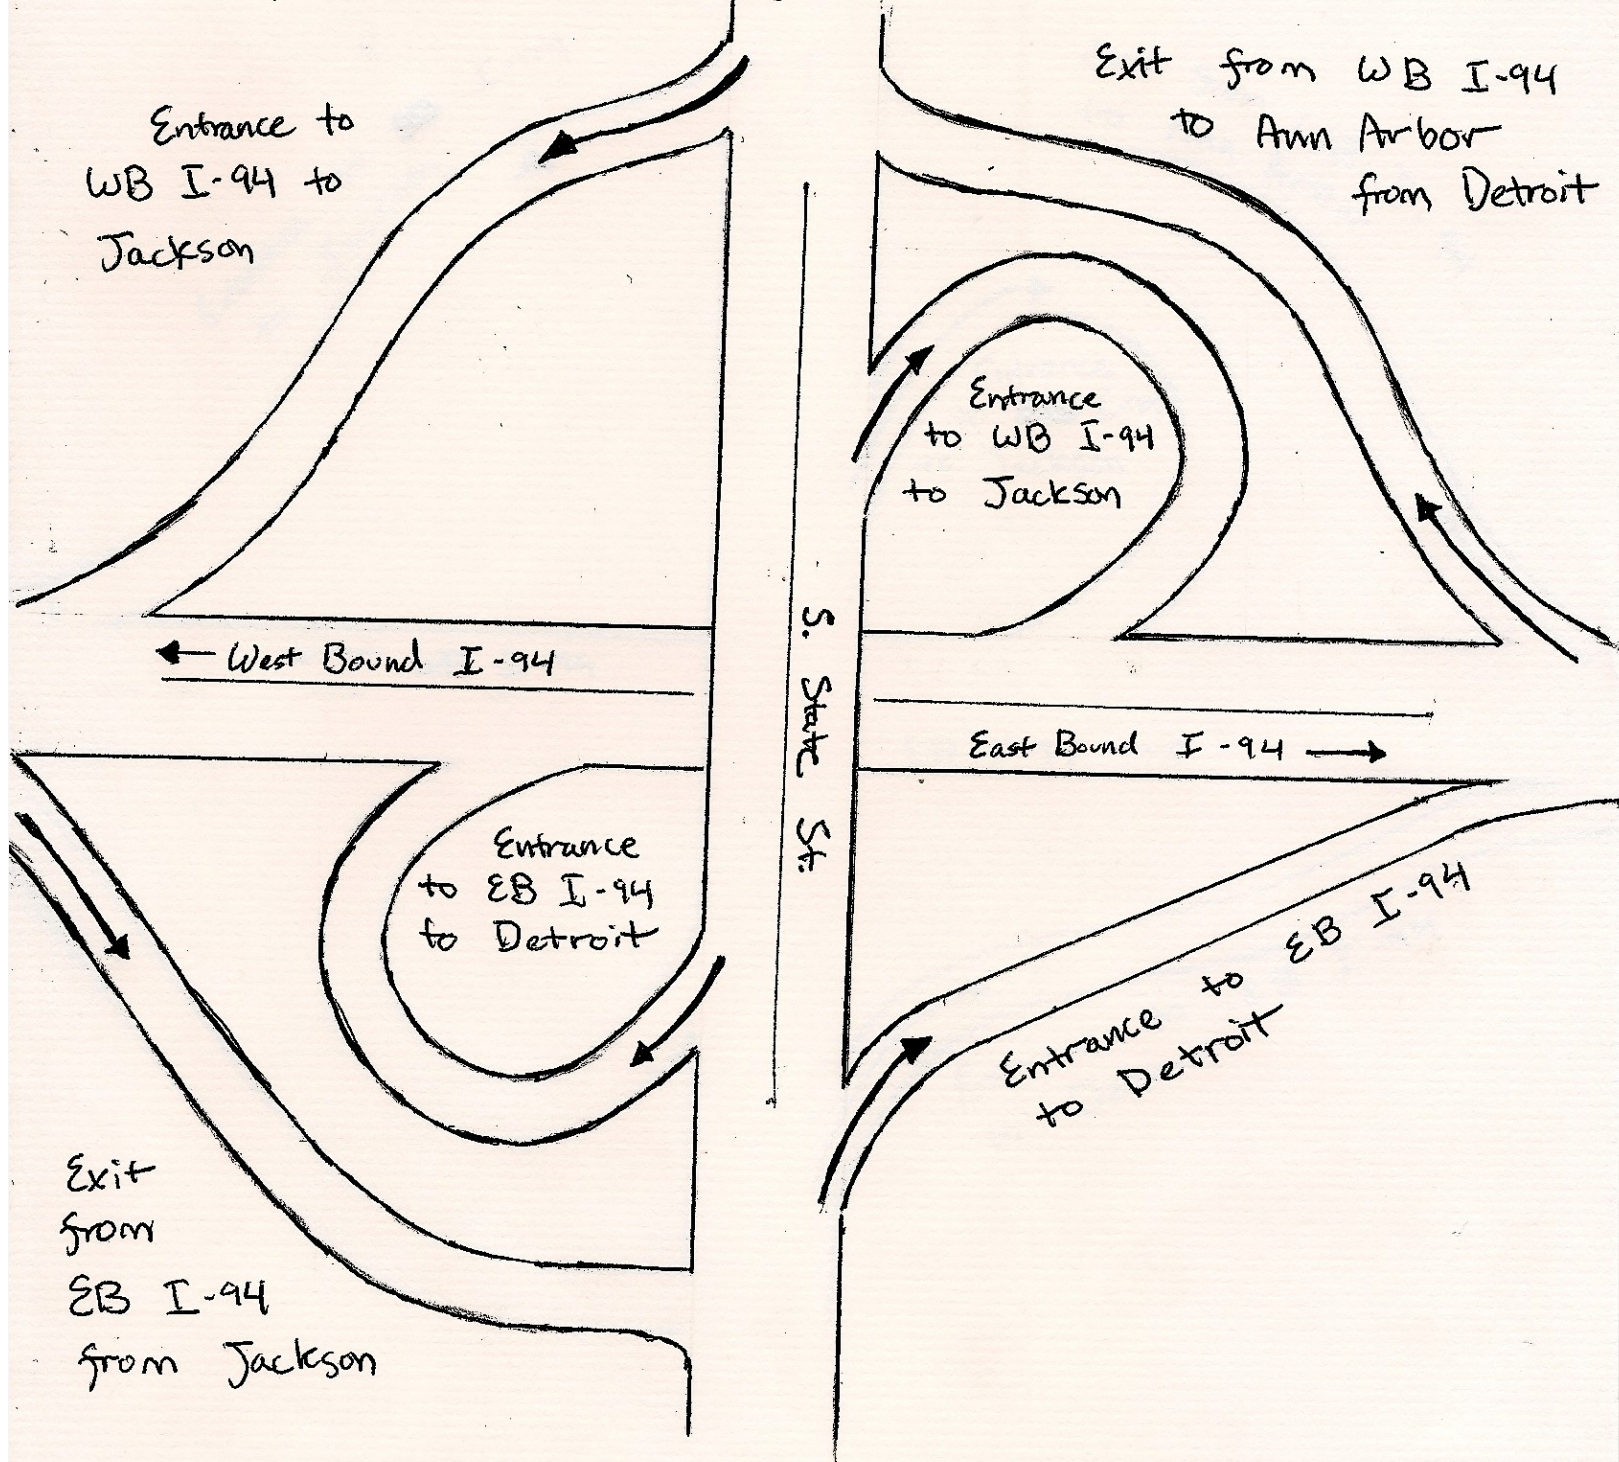 Entrance to
WB I-94 to
Jackson
Exit from WB I-94
to Ann Arbor
from Detroit
Entrance
to WB I-94
to Jackson
West Bound I-94
S. State St.
East Bound I-94
Entrance
to EB I-94
to Detroit
Entrance to EB I-94
to Detroit
Exit
from
EB I-94
from Jackson